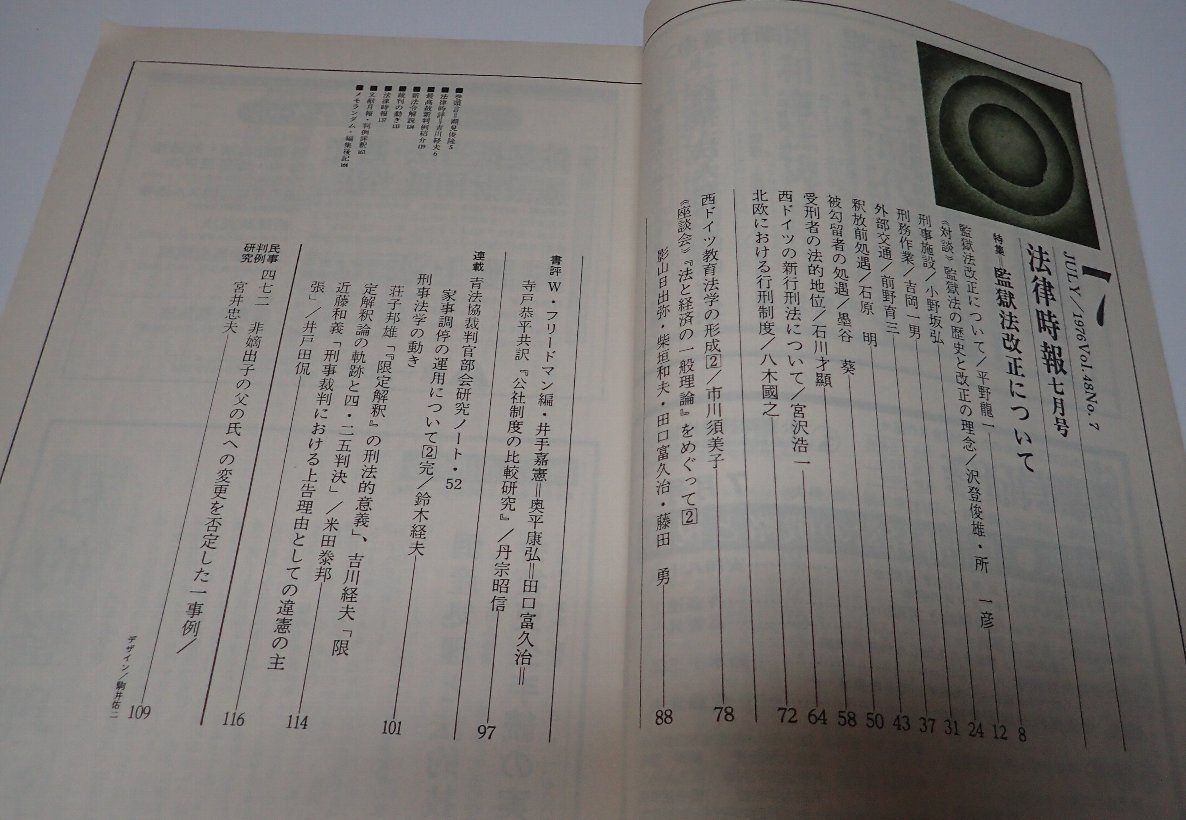 7
JULY/1976 Vol.48 No.7
法律時報七月号
特集=監獄法改正について
監獄法改正について/平野龍一 8
《対談》監獄法の歴史と改正の理念/沢登俊雄・所 一彦 12
刑事施設/小野坂弘 24
刑務作業/吉岡一男 31
外部交通/前野育三 37
釈放前処遇/石原 明 43
被勾留者の処遇/墨谷 葵 50
受刑者の法的地位/石川才顯 58
西ドイツの新行刑法について/宮沢浩一 64
北欧における行刑制度/八木國之 72
西ドイツ教育法学の形成[2]/市川須美子 78
《座談会》『法と経済の一般理論』をめぐって[2]
影山日出弥・柴垣和夫・田口富久治・藤田 勇 88
■発言席=潮見俊隆 5
■法律時評=吉川経夫 6
■最高裁新判例紹介
■新法令解説
■裁判の動き
■法律時報
■文献月報・判例評釈
■メモランダム・編集後記
書評 W・フリードマン編・井手嘉憲=奥平康弘=田口富久治=
寺戸恭平共訳『公社制度の比較研究』/丹宗昭信 97
連載 青法協裁判官部会研究ノート・52
家事調停の運用について[2]完/鈴木経夫 101
刑事法学の動き
荘子邦雄「『限定解釈』の刑法的意義」、吉川経夫「限
定解釈論の軌跡と四・二五判決」/米田泰邦 114
近藤和義「刑事裁判における上告理由としての違憲の主
張」/井戸田侃 116
民事判例研究 四七二 非嫡出子の父の氏への変更を否定した一事例/
宮井忠夫 109
デザイン/駒井佑二